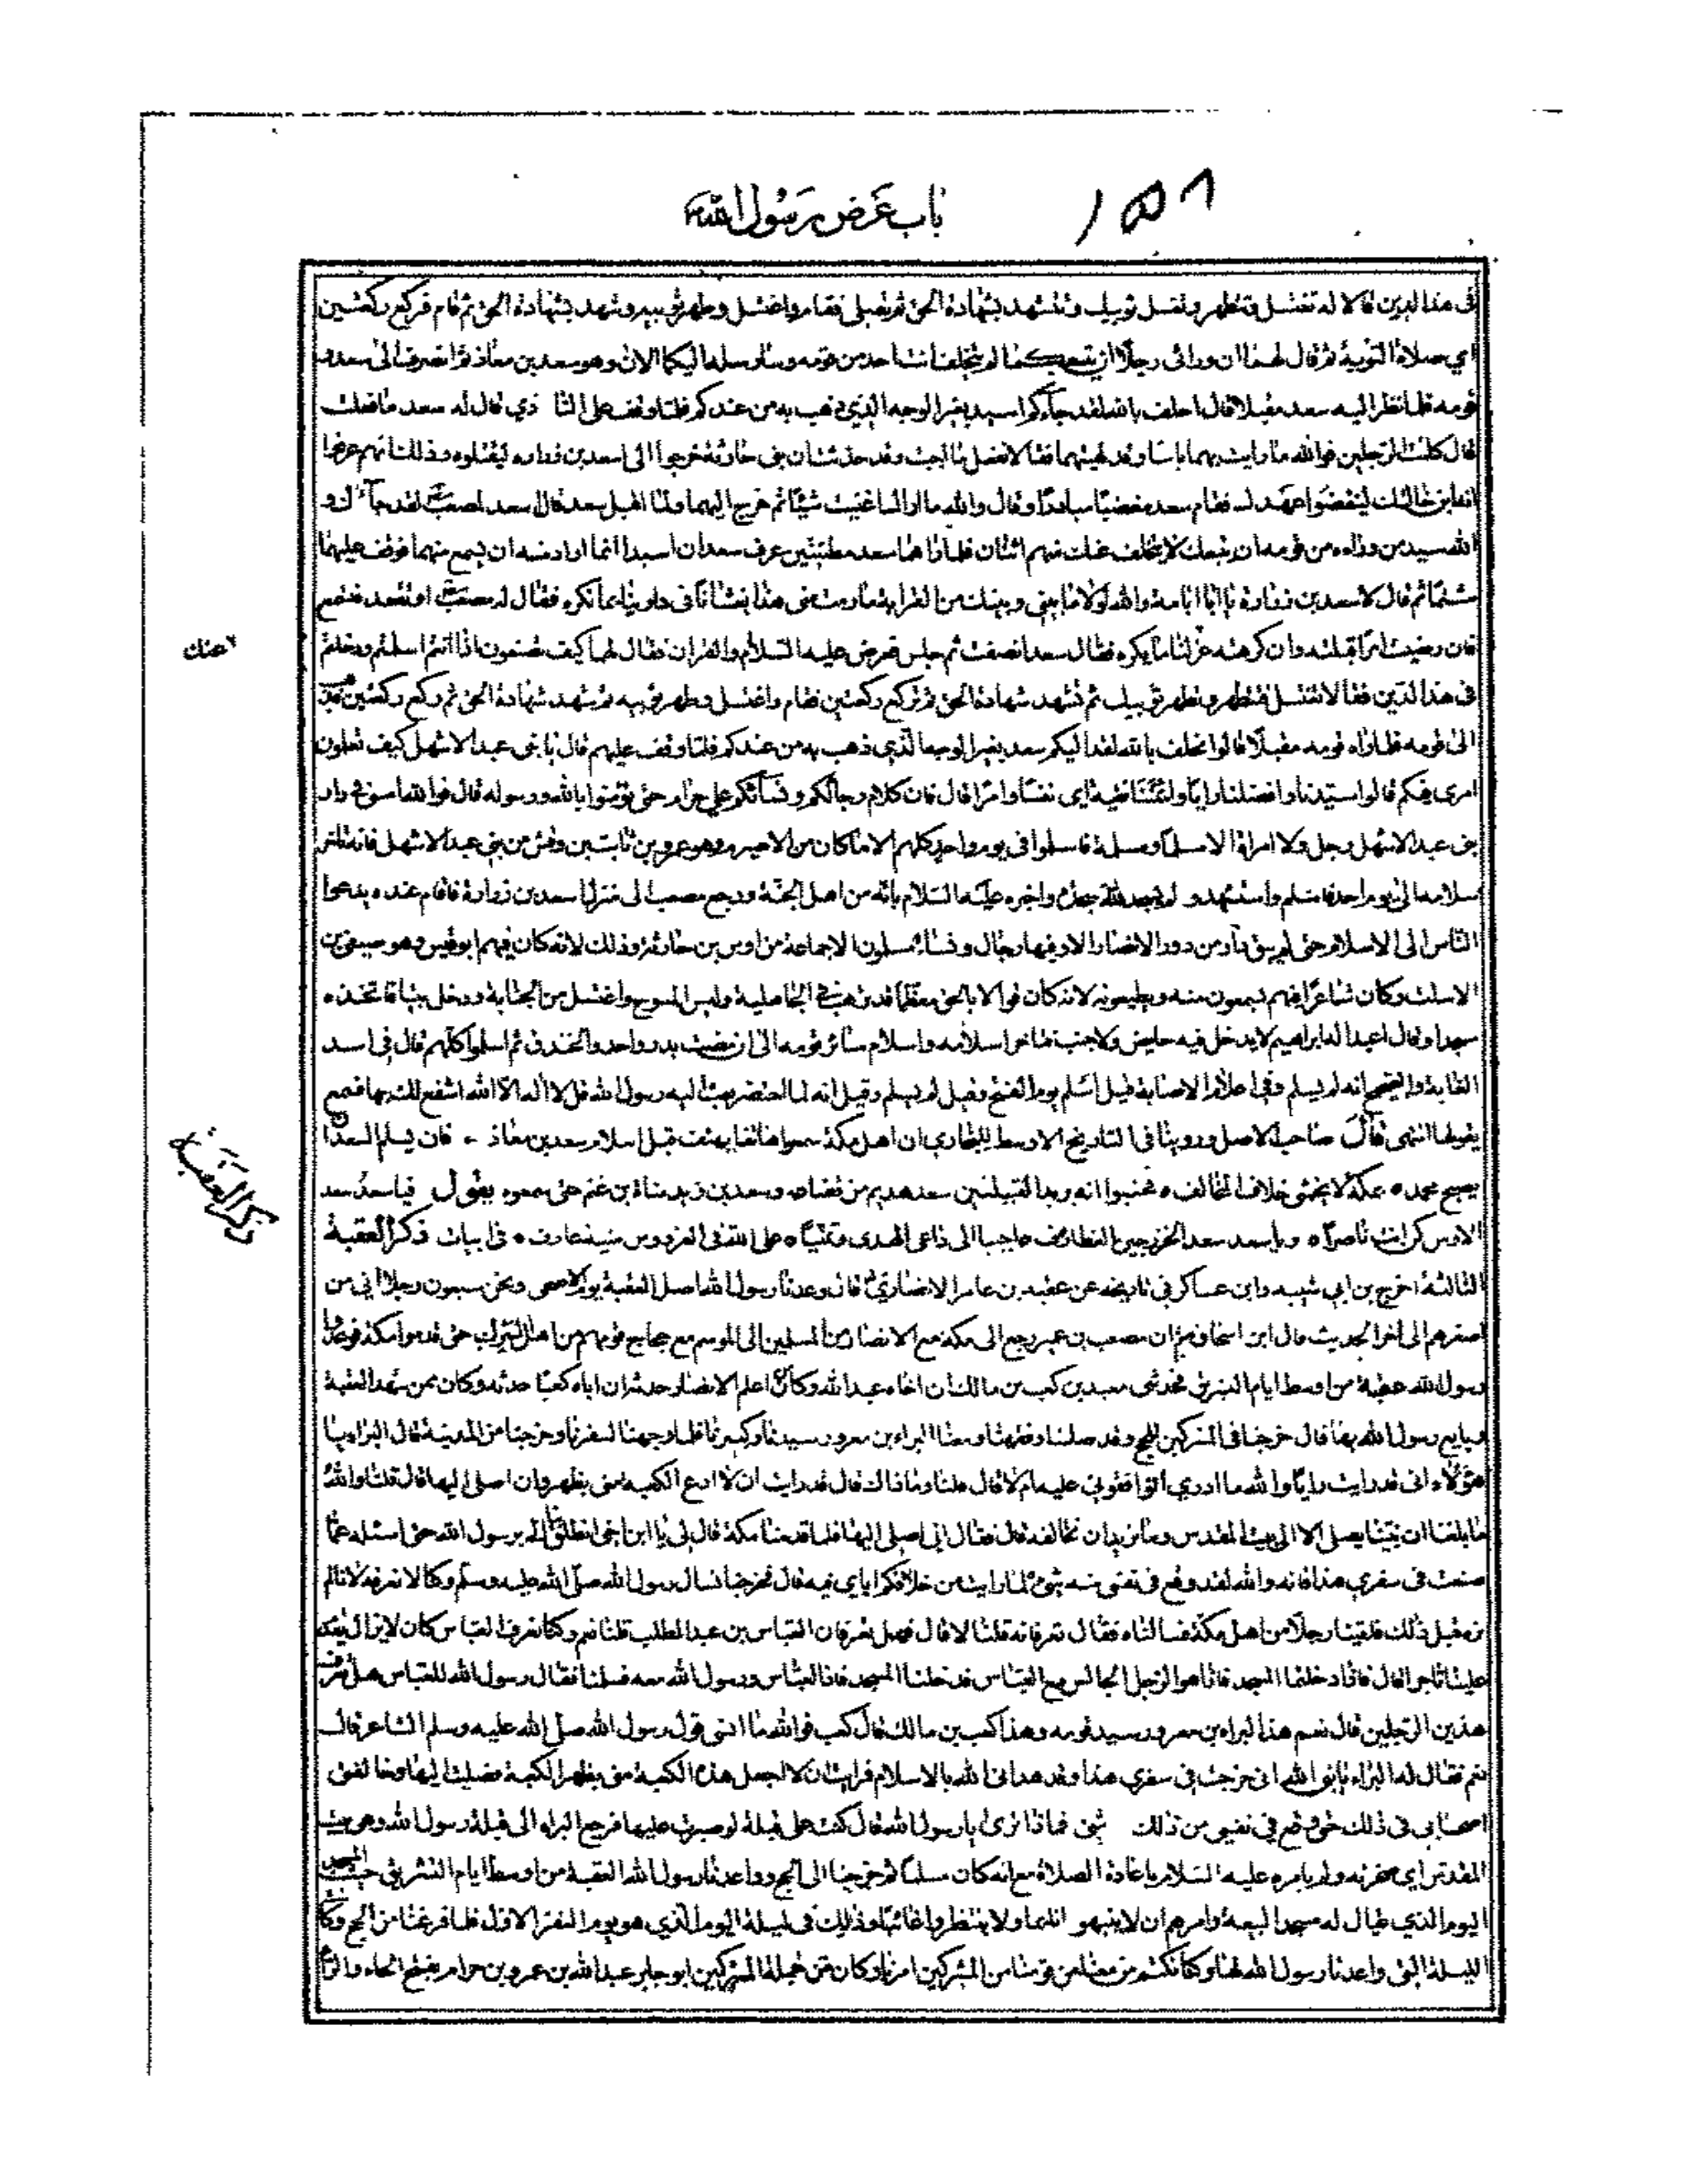 ١٥٨
باب عرض رسول الله
في هذا الدين قالا له تغتسل فتطهر وتغسل ثوبيك وتتشهد بشهادة الحق ثم تصلي فقام واغتسل وطهر ثوبيه وشهد بشهادة الحق ثم قام فركع ركعتين
اي صلاة التوبة ثم قال لهما ان ورائي رجلا ان تبعكما لم يتخلف احد من قومه وسارسله اليكما الان وهو سعد بن معاذ ثم انصرف الى سعد و
قومه فلما نظر اليه سعد مقبلا قال احلف بالله لقد جاءكم اسيد بغير الوجه الذي ذهب به من عندكم فلما وقف على النادي قال له سعد ما فعلت
قال كلمت الرجلين فوالله ما رايت بهما باسا وقد نهيتهما فقالا نفعل ما احببت وقد حدثت ان بني حارثة خرجوا الى اسعد بن زرارة ليقتلوه وذلك انهم عرفوا
انه ابن خالتك لينقضوا عهدك فقام سعد مغضبا مبادرا وقال والله ما اراك اغنيت شيئا ثم خرج اليهما ولما اقبل سعد قال اسعد لمصعب لقد جاءك و
الله سيد من وراءه من قومه ان يتبعك لا يتخلف عنك منهم اثنان فلما راهما سعد مطمئنين عرف سعد ان اسيدا انما اراد منه ان يسمع منهما فوقف عليهما
متشتما ثم قال لاسعد بن زرارة يا ابا امامة والله لولا ما بيني وبينك من القرابة ما رمت مني هذا تغشانا في دارينا بما نكره فقال له مصعب او تقعد فتسمع
فان رضيت امرا قبلته وان كرهته عزلنا ما تكره فقال سعد انصفت ثم جلس فعرض عليه الاسلام والقران فقال لهما كيف تصنعون اذا انتم اسلمتم ودخلتم
في هذا الدين فقالا تغتسل فتطهر وتطهر ثوبيك ثم تشهد شهادة الحق ثم تركع ركعتين فقام واغتسل وطهر ثوبيه ثم شهد شهادة الحق ثم ركع ركعتين
الى قومه فلما راه قومه مقبلا قالوا نحلف بالله لقد اليكم سعد بغير الوجه الذي ذهب به من عندكم فلما وقف عليهم قال يا بني عبد الاشهل كيف تعلمون
امري فيكم قالوا سيدنا وافضلنا رايا وايمننا نقيبة اي نفسا وامرا قال فان كلام رجالكم ونسائكم علي حرام حتى تؤمنوا بالله ورسوله قال فوالله ما امسى في دار
بني عبد الاشهل رجل ولا امراة الا مسلما ومسلمة فاسلموا في يوم واحد كلهم الا ما كان من الاصيرم وهو عمرو بن ثابت بن وقش من بني عبد الاشهل فانه تاخر
سلامه الى يوم احد فاسلم واستشهد ولم يسجد لله سجدة واخبر عليه السلام بانه من اهل الجنة ورجع مصعب الى منزل اسعد بن زرارة فاقام عنده يدعوا
الناس الى الاسلام حتى لم يبق دار من دور الانصار الا وفيها رجال ونساء مسلمون الا جماعة من اوس بن حارثة وذلك لانه كان فيهم ابو قيس وهو صيفي بن
الاسلت وكان شاعرا لهم يسمعون منه ويطيعونه لانه كان قوالا بالحق معظما قد ترهب في الجاهلية ولبس المسوح واغتسل من الجنابة ودخل بيتا فاتخذه
مسجدا وقال اعبد اله ابراهيم لا يدخل فيه حايض ولا جنب فتاخر اسلامه واسلام سائر قومه الى ان مضت بدر واحد والخندق ثم اسلموا كلهم قال في اسد
الغابة والصحيح انه لم يسلم وفي الاصابة قيل اسلم يوم الفتح وقيل لم يسلم وقيل انه لما احتضر بعث اليه رسول الله قل لا اله الا الله اشفع لك بها فسمع
يقولها انتهى قال صاحب الاصل وروينا في التاريخ الاوسط للبخاري ان اهل مكة سمعوا هاتفا يهتف قبل اسلام سعد بن معاذ * فان يسلم السعدان
يصبح محمد * بمكة لا يخشى خلاف المخالف * فحسبوا انه يريد القبيلتين سعد هديم من قضاعة وسعد بن زيد مناة بن تميم حتى سمعوه يقول فيا سعد سعد
الاوس كن انت ناصرا * ويا سعد سعد الخزرجين الغطارف * اجيبا الى داعي الهدى وتمنيا * على الله في الفردوس منية عارف * في ابيات ذكر العقبة
الثالثة اخرج بن ابي شيبه وابن عساكر في تاريخه عن عقبه بن عامر الانصاري قال وعدنا رسول الله اصل العقبة يوم الاضحى ونحن سبعون رجلا اني من
اصغرهم الى اخر الحديث قال ابن اسحاق ثم ان مصعب بن عمير رجع الى مكة مع الانصار من المسلمين الى الموسم مع حجاج قومهم من اهل الشرك حتى قدموا مكة فوعدوا
رسول الله عقبة من اوسط ايام التشريق فحدثني معبد بن كعب بن مالك ان اخاه عبد الله وكان من اعلم الانصار حدثه ان اباه كعبا حدثه وكان ممن شهد العقبة
وبايع رسول الله بها قال خرجنا في المشركين للحج وقد صلينا وفقهنا ومعنا البراء بن معرور سيدنا وكبيرنا فلما وجهنا لسفرنا وخرجنا من المدينة قال البراء يا
هؤلاء اني قد رايت رايا والله ما ادري اتوافقوني عليه ام لا قال قلنا وما ذاك قال قد رايت ان لا ادع الكعبة مني بظهر وان اصلي اليها قال قلنا والله
ما بلغنا ان نبينا يصلي الا الى بيت المقدس وما نريد ان نخالفه قال فقال اني اصلي اليها فلما قدمنا مكة قال لي يا ابن اخي انطلق الى رسول الله حتى اسئله عما
صنعت في سفري هذا فانه والله لقد وقع في نفسي منه شئ لما رايت من خلافكم اياي فيه قال فخرجنا نسال رسول الله صلى الله عليه وسلم وكنا لا نعرفه لانا لم
نره قبل ذلك فلقينا رجلا من اهل مكة فسالناه فقال تعرفانه قلنا لا قال فهل تعرفان العباس بن عبد المطلب قلنا نعم وكنا نعرف العباس كان لا يزال يقدم
علينا تاجرا قال فاذا دخلتما المسجد فاذا هو الرجل الجالس مع العباس فدخلنا المسجد فاذا العباس ورسول الله معه فسلمنا فقال رسول الله للعباس هل تعرف
هذين الرجلين قال نعم هذا البراء بن معرور سيد قومه وهذا كعب بن مالك قال كعب فوالله ما انسى قول رسول الله صلى الله عليه وسلم الشاعر قال
نعم فقال له البراء يا نبي الله اني خرجت في سفري هذا وقد هداني الله بالاسلام فرايت ان لا اجعل هذه الكعبة مني بظهر الكعبة فصليت اليها وخالفني
اصحابي في ذلك حتى وقع في نفسي من ذلك شئ فماذا ترى يا رسول الله قال كنت على قبلة لو صبرت عليها فرجع البراء الى قبلة رسول الله وهي بيت
المقدس اي صخرته ولم يامره عليه السلام باعادة الصلاة مع انه كان مسلما ثم خرجنا الى الحج وواعدنا رسول الله العقبة من اوسط ايام التشريق حيث المسجد
اليوم الذي يقال له مسجد البيعة وامرهم ان لا ينبهوا نائما ولا ينتظروا غائبا وذلك في ليلة اليوم الذي هو يوم النفر الاول فلما فرغنا من الحج وكانت
الليلة التي واعدنا رسول الله لها وكنا نكتم من معنا من قومنا من المشركين امرنا وكان من جملة المشركين ابو جابر عبد الله بن عمرو بن حرام بفتح الحاء والراء
عنك
ذكر العقبة